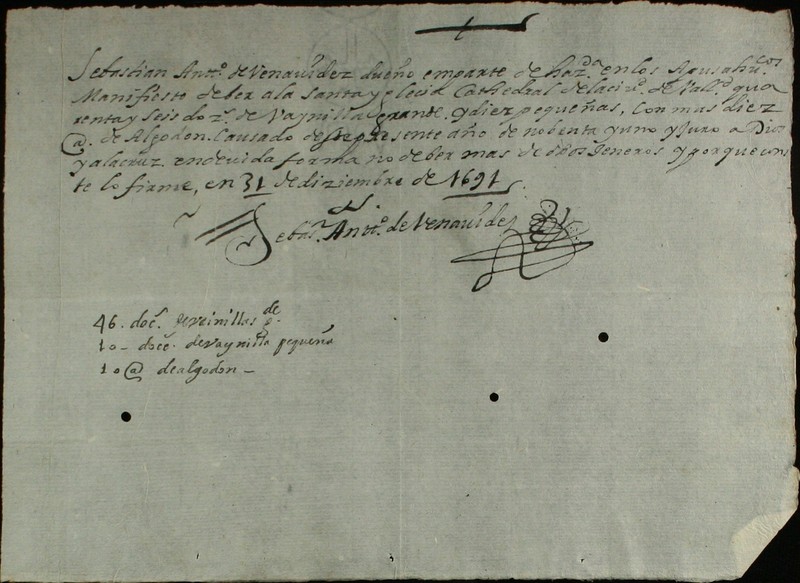 Sebastian Antt.º de Venauidez dueño emparte de haz.da en los Apusahu.cos
Manifiesto deber ala Santa Yglecia Cathedral delaciu.d de Vall.d qua
renta y seis doz.s de Vaynilla grande. y diez pequeñas, Con mas diez
@. de Algodon. Causado deste presente año de nobenta yuno y Juro a Dios
yalacruz endeuida forma no deber mas de d.hos Jeneros y porque cons
te lo firme, en 31 de diziembre de 1691
Sebas.n Antt.º de Venauides
46. doc.s de veinillas
10 - doc.s devaynilla pequeña
10 @ dealgodon -